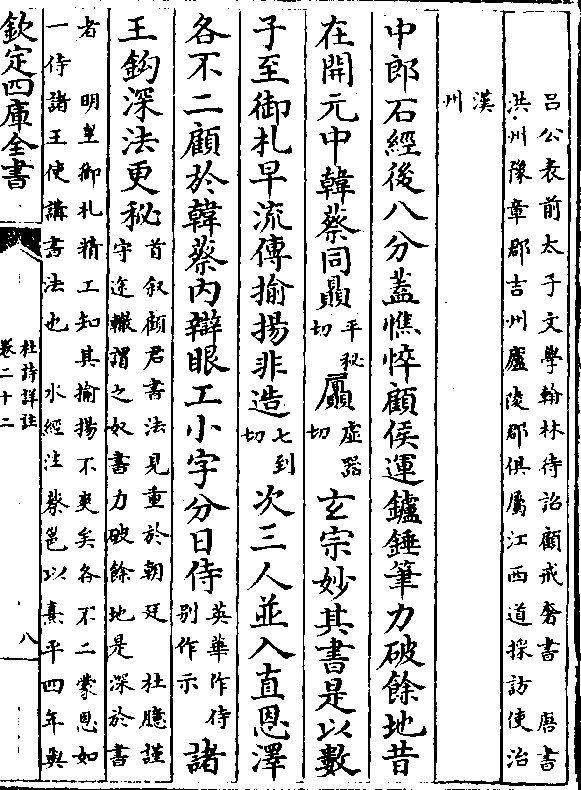 呂公表前太子文學翰林待詔顧戒奢書　唐書
洪州豫章郡吉州廬陵郡俱屬江西道採訪使治
漢
州
中郎石經後八分蓋憔悴顧侯運鑪錘筆力破餘地昔
在開元中韓蔡同贔平秘切屭虛器切玄宗妙其書是以數
子至御札早流傳揄揚非造七到切次三人並入直恩澤
各不二顧於韓蔡內辯眼工小字分日侍英華作侍別作示諸
王鈎深法更秘首叙顧君書法見重於朝廷　杜臆謹
守途轍謂之奴書力破餘地是深於書
者　明皇御札精工知其揄揚不更矣各不二蒙恩如
一侍諸王使講書法也　水經注蔡邕以熹平四年與
欽定四庫全書
杜詩詳註
卷二十二
八